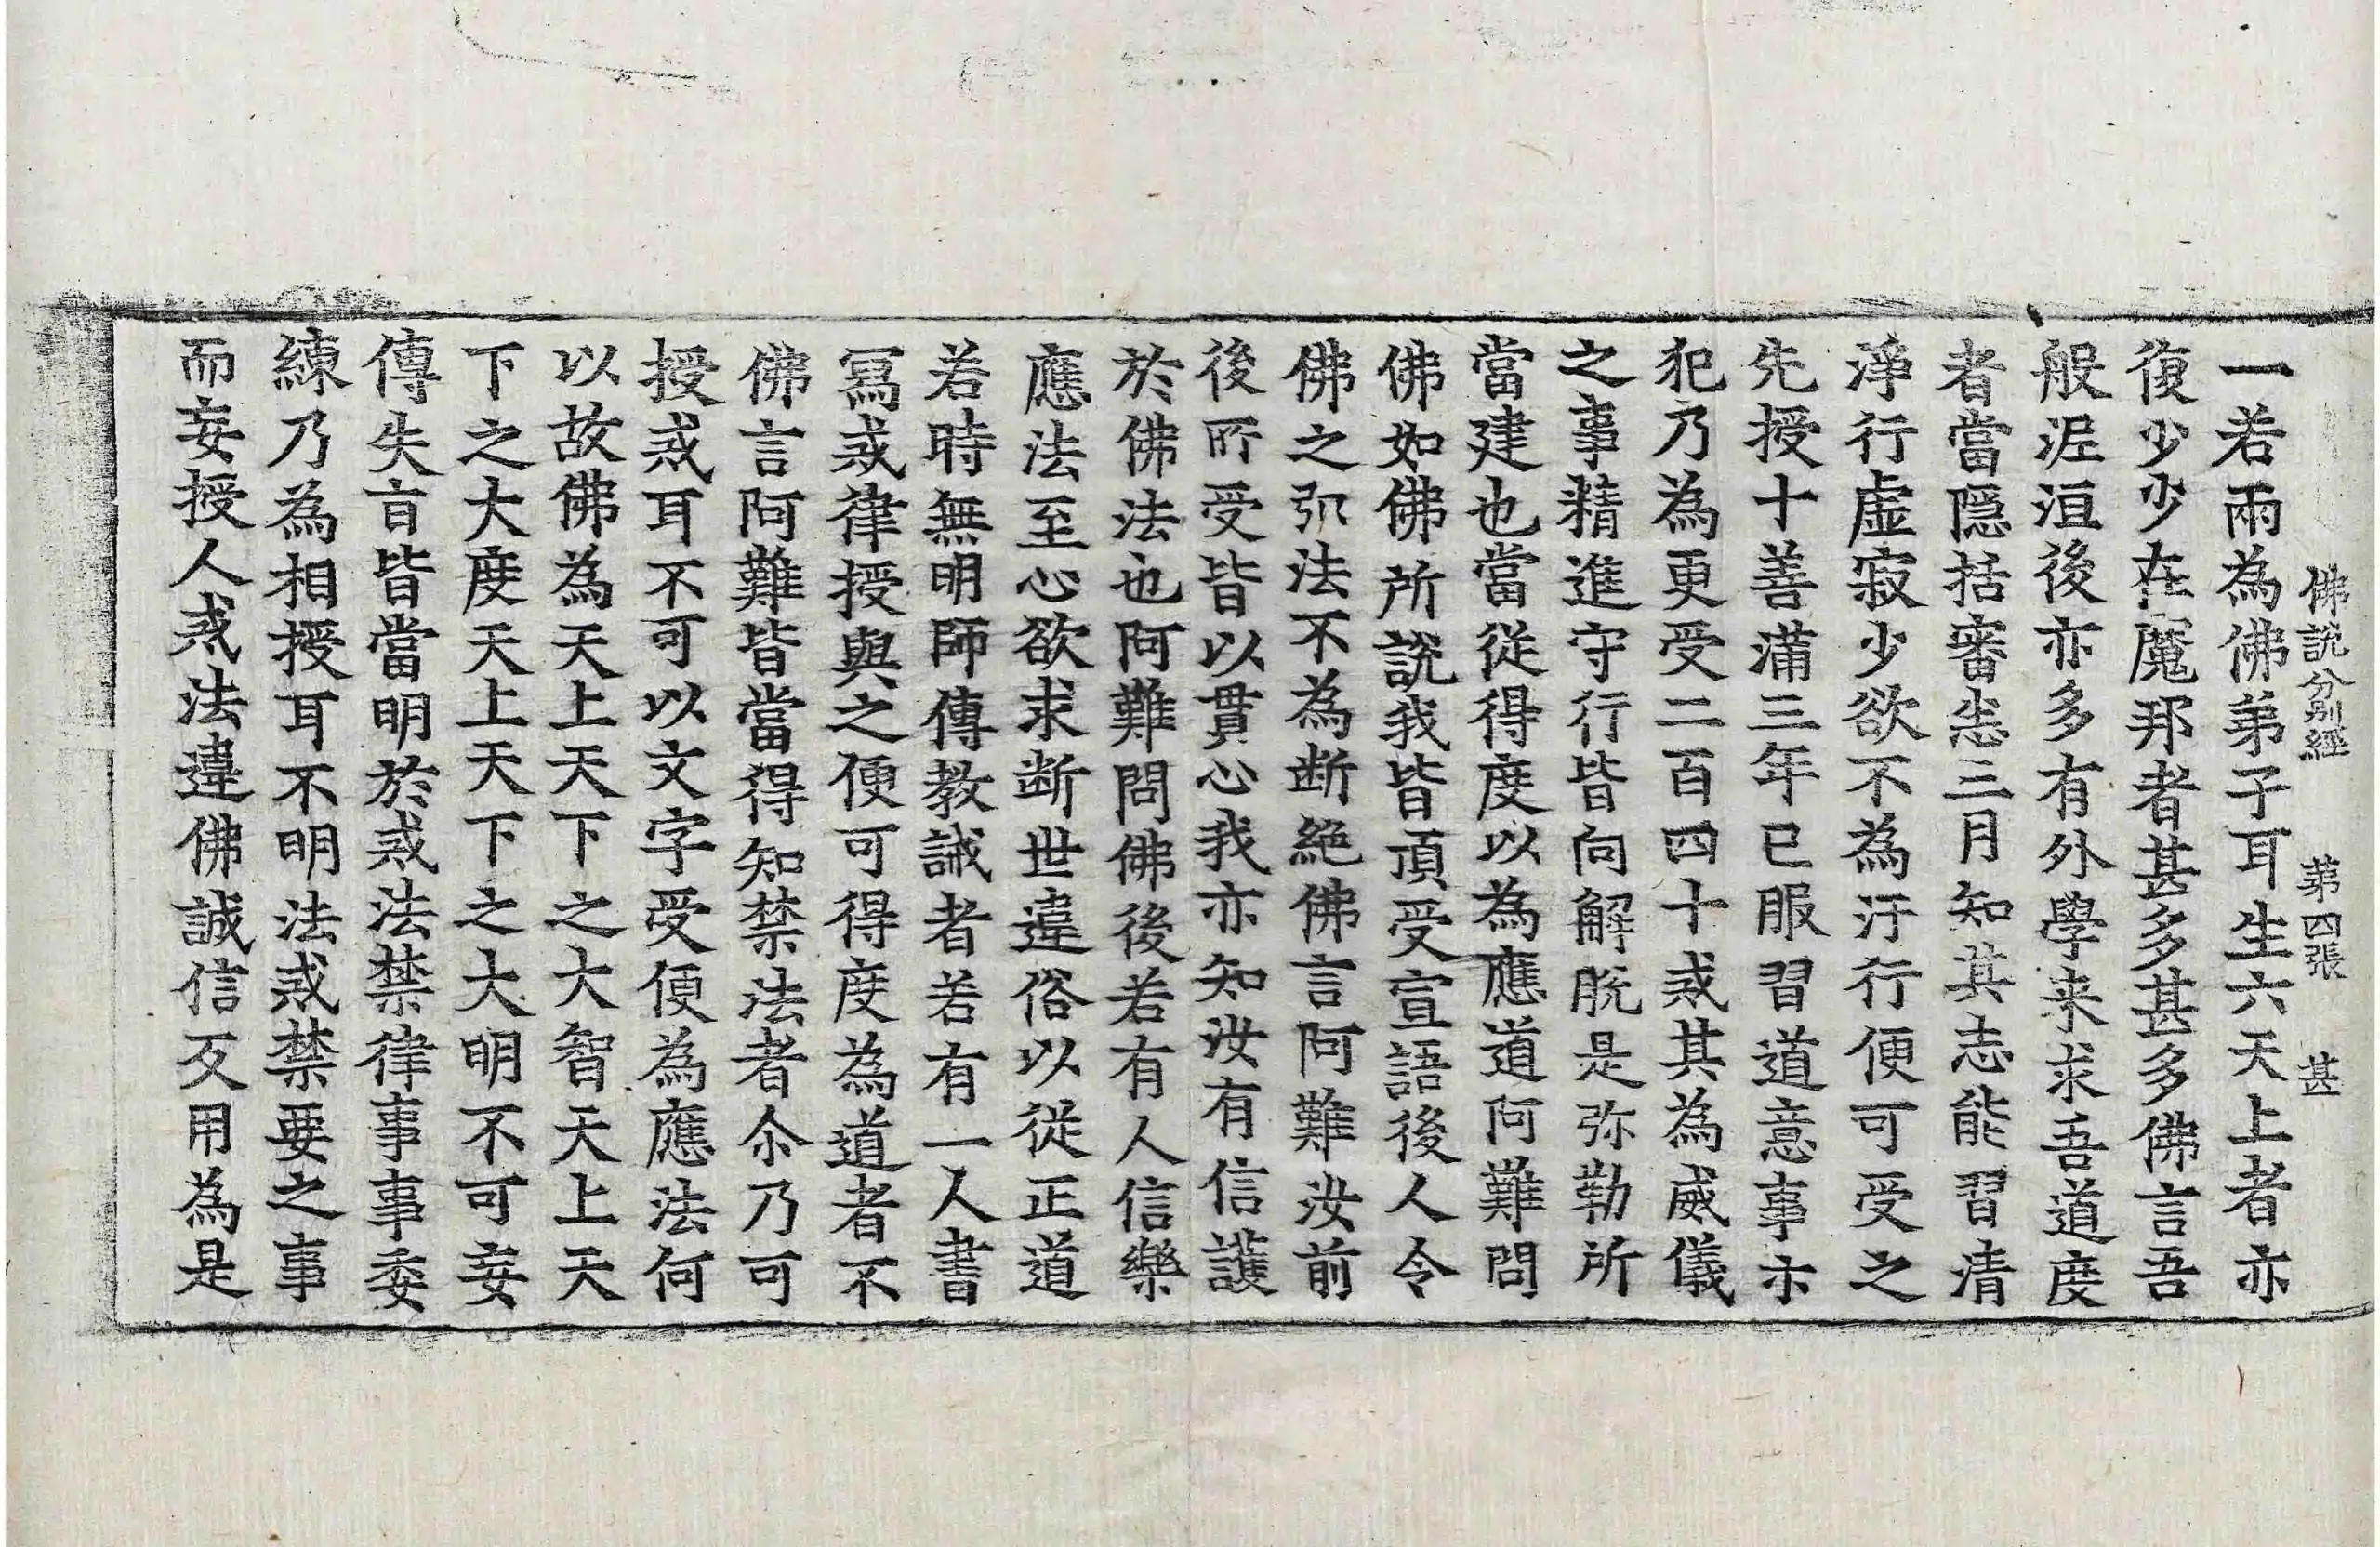 佛說分別經 第四張 甚
一若兩為佛弟子耳生六天上者亦
復少少在魔邦者甚多甚多佛言吾
般泥洹後亦多有外學来求吾道度
者當隱括審恙三月知其志能習清
淨行虛寂少欲不為汙行便可受之
先授十善滿三年已服習道意事不
犯乃為更受二百四十戒其為威儀
之事精進守行皆向解脫是弥勒所
當建也當從得度以為應道阿難問
佛如佛所說我皆頂受宣語後人令
佛之弘法不為断絕佛言阿難汝前
後所受皆以貫心我亦知汝有信護
於佛法也阿難問佛後若有人信樂
應法至心欲求断世違俗以從正道
若時無明師傳教誡者若有一人書
寫戒律授與之便可得度為道者不
佛言阿難皆當得知禁法者尒乃可
授戒耳不可以文字受便為應法何
以故佛為天上天下之大智天上天
下之大度天上天下之大明不可妄
傳失盲皆當明於戒法禁律事事委
練乃為相授耳不明法戒禁要之事
而妄授人戒法違佛誠信反用為是